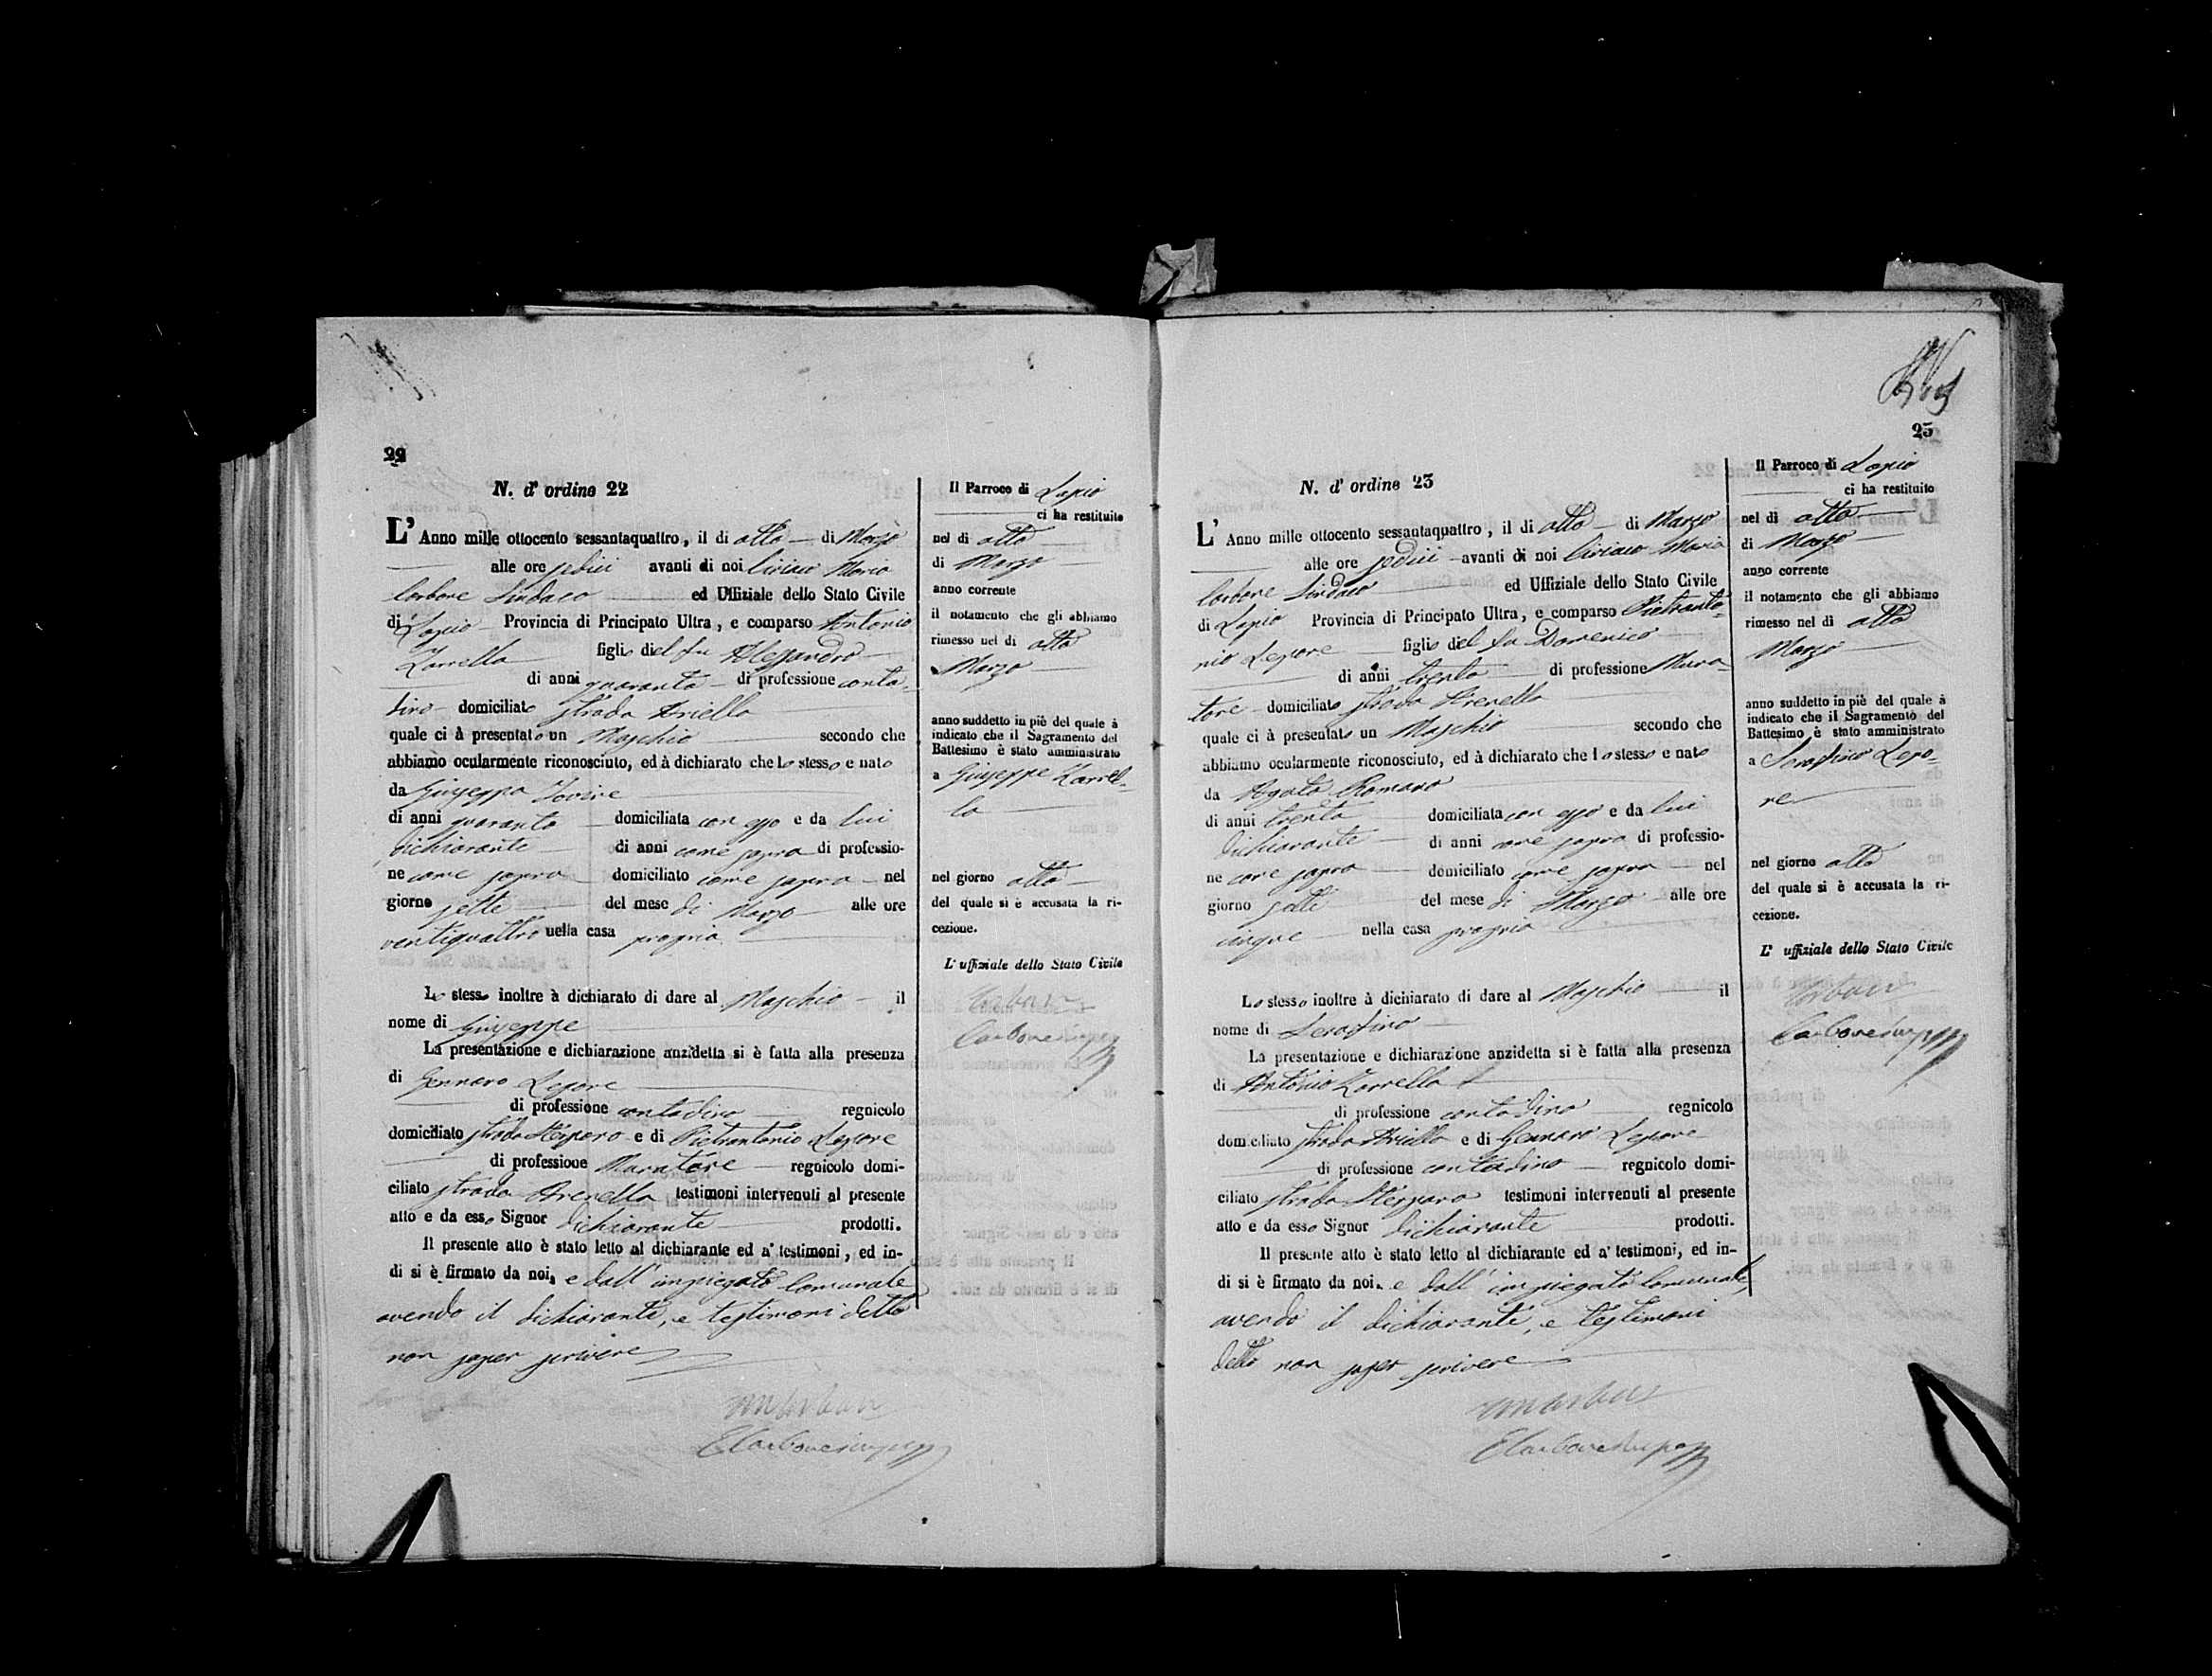 22
N. d' ordine 22
L' Anno mille ottocento sessantaquattro, il di otto di Marzo
alle ore sedici avanti di noi Ciriaco Maria
Carbone Sindaco ed Uffiziale dello Stato Civile
di Lapio Provincia di Principato Ultra, e comparso Antonio
Zarrella figlio del fu Alessandro
di anni quaranta di professione conta-
dino domiciliato strada Ariella
quale ci à presentato un Maschio secondo che
abbiamo ocularmente riconosciuto, ed à dichiarato che lo stesso e nato
da Giuseppa Iovine
di anni quaranta domiciliata con esso e da lui
dichiarante di anni come sopra di professio-
ne come sopra domiciliato come sopra nel
giorno sette del mese di Marzo alle ore
ventiquattro nella casa propria
Lo stesso inoltre à dichiarato di dare al Maschio il
nome di Giuseppe
La presentazione e dichiarazione anzidetta si è fatta alla presenza
di Gennaro Lepore
di professione contadino regnicolo
domiciliato strada e di Pietrantonio Lepore
di professione Muratore regnicolo domi-
ciliato strada Arenella testimoni intervenuti al presente
atto e da esso Signor dichiarante prodotti.
Il presente atto è stato letto al dichiarante ed a' testimoni, ed in-
di si è firmato da noi, e dall' impiegato Comunale
avendo il dichiarante, e testimoni detto
non saper scrivere
Il Parroco di Lapio
ci ha restituito
nel di otto
di Marzo
anno corrente
il notamento che gli abbiamo
rimesso nel di otto
Marzo
anno suddetto in piè del quale à
indicato che il Sagramento del
Battesimo è stato amministrato
a Giuseppe Zarrel-
la
nel giorno otto
del quale si è accusata la ri-
cezione.
L' uffiziale dello Stato Civile
Carbone
23
N. d' ordine 23
L' Anno mille ottocento sessantaquattro, il di otto di Marzo
alle ore sedici avanti di noi Ciriaco Maria
Carbone Sindaco ed Uffiziale dello Stato Civile
di Lapio Provincia di Principato Ultra, e comparso Pietranto-
nio Lepore figlio del fu Domenico
di anni trenta di professione Mura-
tore domiciliato strada Arenella
quale ci à presentato un Maschio secondo che
abbiamo ocularmente riconosciuto, ed à dichiarato che lo stesso e nato
da Agata Romano
di anni trenta domiciliata con esso e da lui
dichiarante di anni come sopra di professio-
ne come sopra domiciliato come sopra nel
giorno sette del mese di Marzo alle ore
cinque nella casa propria
Lo stesso inoltre à dichiarato di dare al Maschio il
nome di Serafino
La presentazione e dichiarazione anzidetta si è fatta alla presenza
di Antonio Zarrella
di professione contadino regnicolo
domiciliato strada Ariella e di Gennaro Lepore
di professione contadino regnicolo domi-
ciliato strada testimoni intervenuti al presente
atto e da esso Signor dichiarante prodotti.
Il presente atto è stato letto al dichiarante ed a' testimoni, ed in-
di si è firmato da noi, e dall' impiegato Comunale,
avendo il dichiarante, e testimoni
detto non saper scrivere
Il Parroco di Lapio
ci ha restituito
nel di otto
di Marzo
anno corrente
il notamento che gli abbiamo
rimesso nel di otto
Marzo
anno suddetto in piè del quale à
indicato che il Sagramento del
Battesimo è stato amministrato
a Serafino Lepo-
re
nel giorno otto
del quale si è accusata la ri-
cezione.
L' uffiziale dello Stato Civile
Carbone